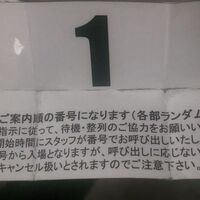 1
ご案内順の番号になります（各部ランダム
指示に従って、待機・整列のご協力をお願いい
開始時間にスタッフが番号でお呼び出しいたし
号から入場となりますが、呼び出しに応じない
キャンセル扱いとされますのでご注意下さい。